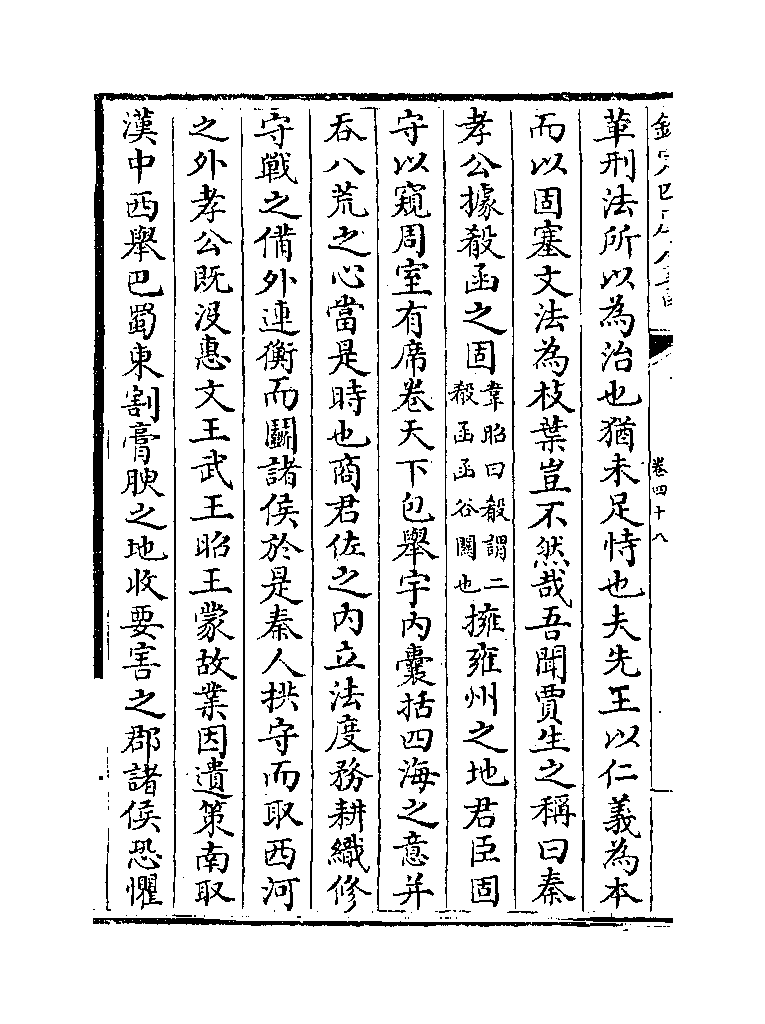 欽定四庫全書
卷四十八
革刑法所以為治也猶未足恃也夫先王以仁義為本
而以固塞文法為枝葉豈不然哉吾聞賈生之稱曰秦
孝公據殽函之固韋昭曰殽謂二殽函函谷關也擁雍州之地君臣固
守以窺周室有席卷天下包舉宇内囊括四海之意并
吞八荒之心當是時也商君佐之内立法度務耕織修
守戰之備外連衡而鬭諸侯於是秦人拱守而取西河
之外孝公既沒惠文王武王昭王蒙故業因遺策南取
漢中西舉巴蜀東割膏腴之地收要害之郡諸侯恐懼